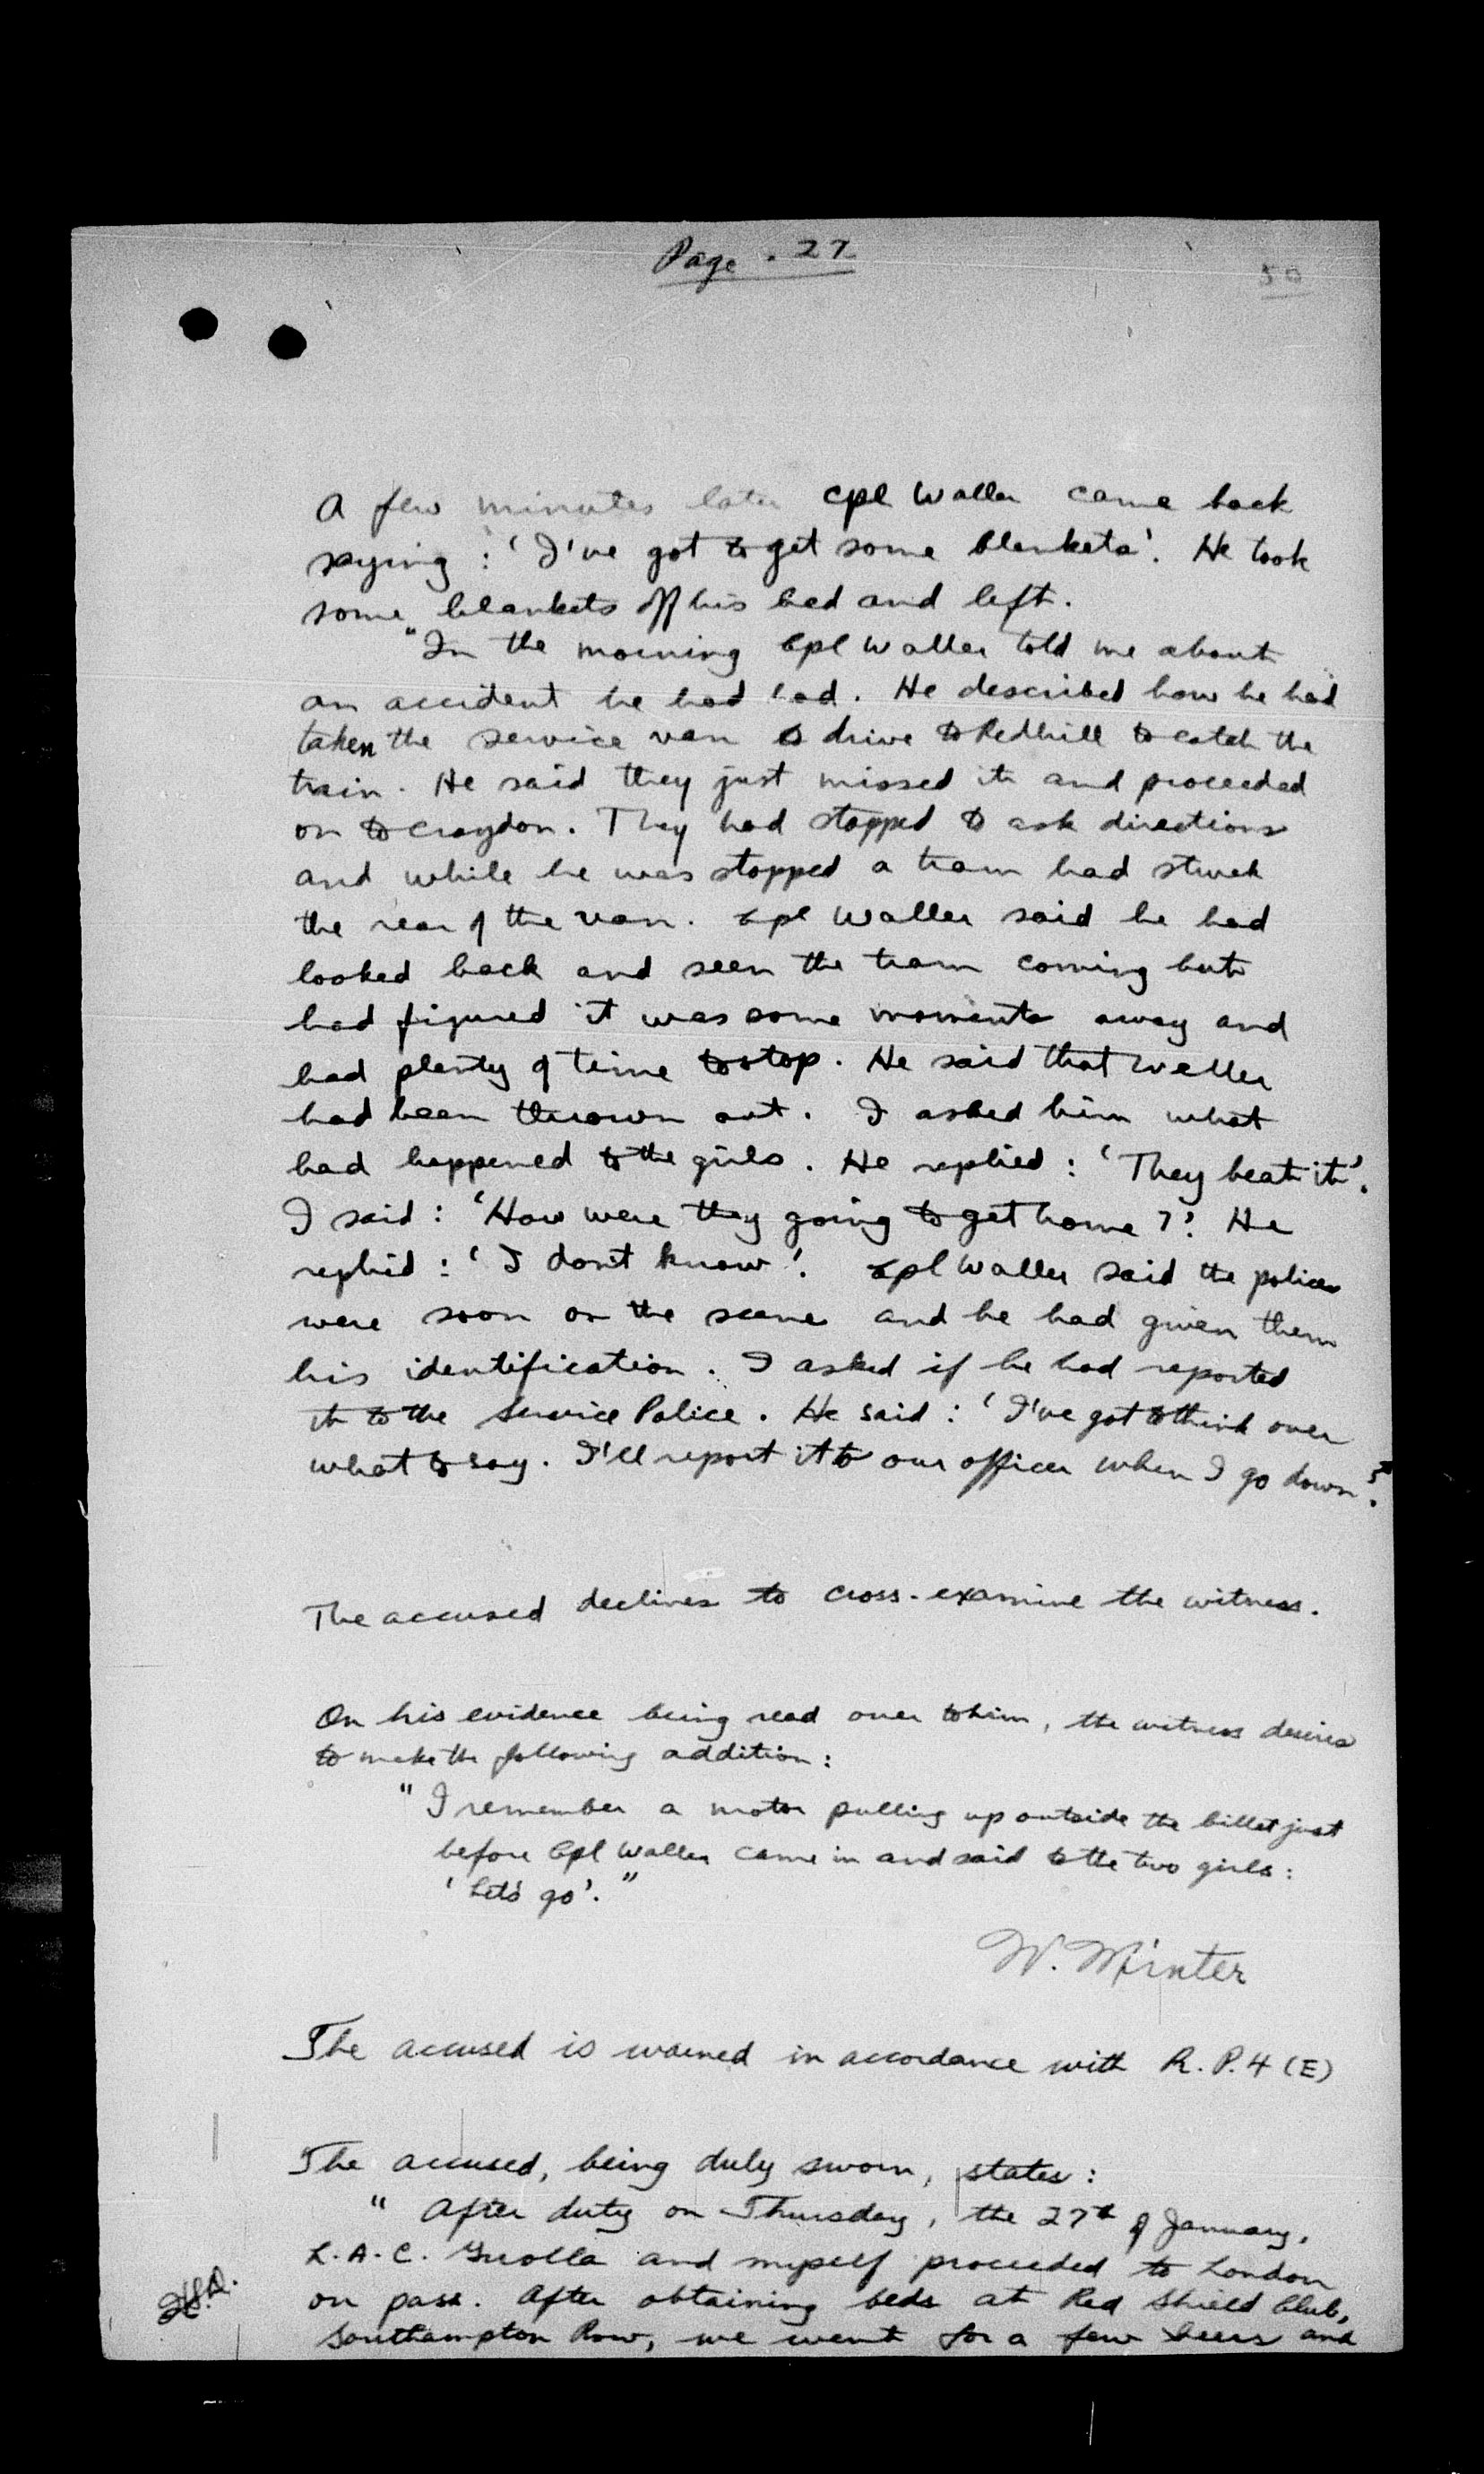 Page . 27
50
A few minutes later Cpl Waller came back
saying : 'I've got to get some blankets'. He took
some blankets off his bed and left.
"In the morning Cpl Waller told me about
an accident he had had. He described how he had
taken the service van to drive to Redhill to catch the
train. He said they just missed it and proceeded
on to Croydon. They had stopped to ask directions
and while he was stopped a tram had struck
the rear of the van. Cpl Waller said he had
looked back and seen the tram coming but
had figured it was some moments away and
had plenty of time to stop. He said that Weller
had been thrown out. I asked him what
had happened to the girls. He replied : 'They beat it'.
I said : 'How were they going to get home ?' He
replied : 'I don't know'. Cpl Waller said the police
were soon on the scene and he had given them
his identification. I asked if he had reported
it to the Service Police. He said : 'I've got to think over
what to say. I'll report it to our officer when I go down'.
The accused declines to cross-examine the witness.
On his evidence being read over to him, the witness desires
to make the following addition :
"I remember a motor pulling up outside the billet just
before Cpl Waller came in and said to the two girls :
'Let's go'."
W. Minter
The accused is warned in accordance with R.P.4 (E)
The accused, being duly sworn, states :
"After duty on Thursday, the 27th of January,
L.A.C. and myself proceeded to London
on pass. After obtaining beds at Red Shield Club,
Southampton Row, we went for a few beers and